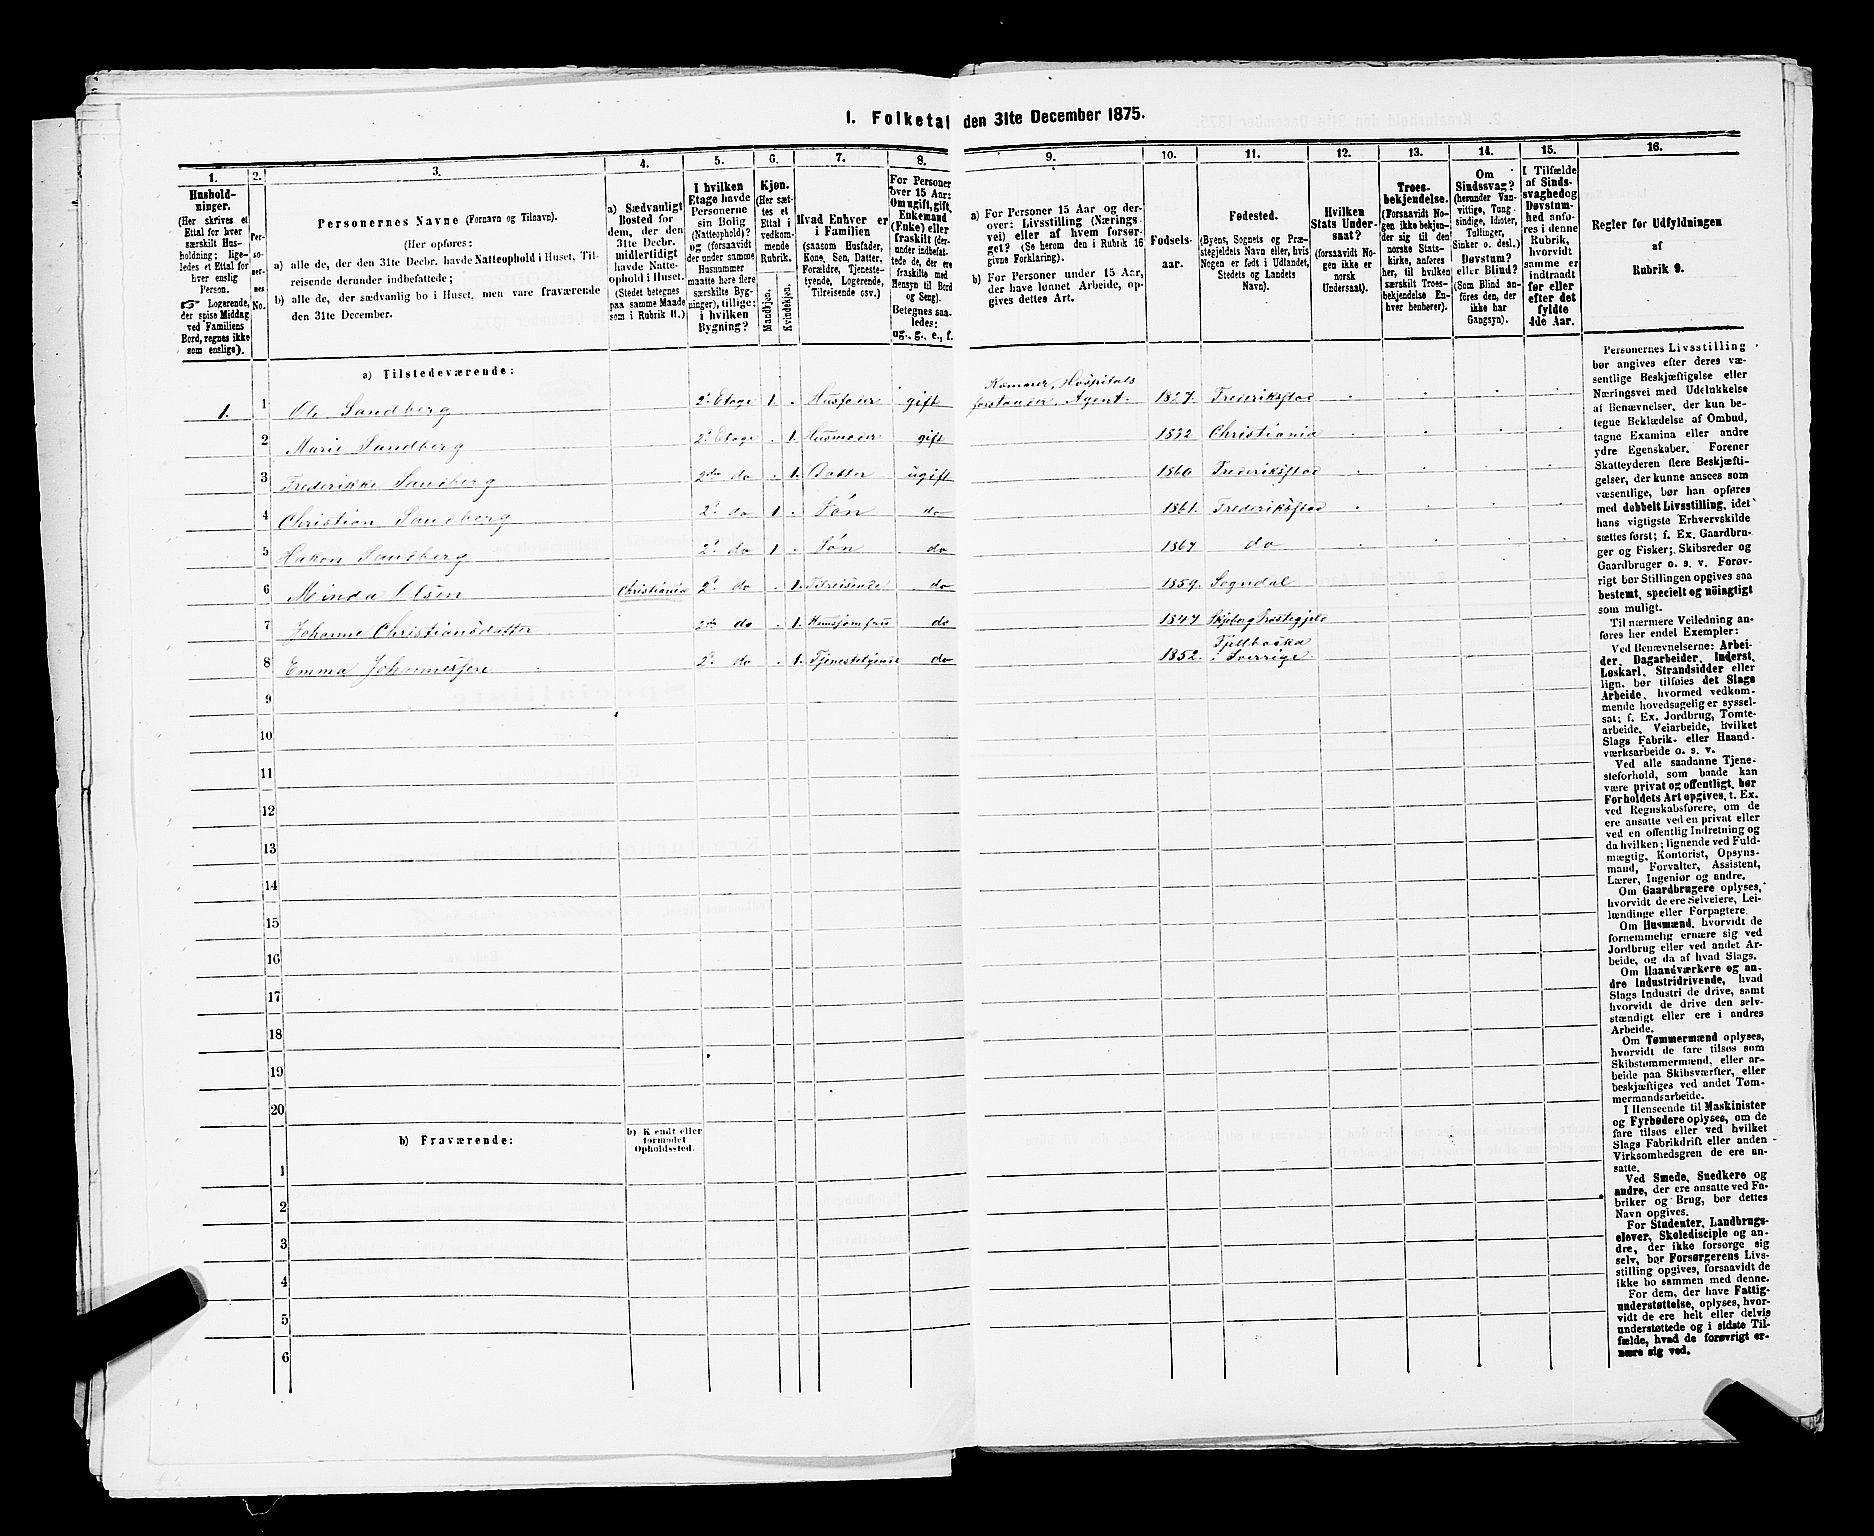 1. Folketal den 31te December 1875.
1. 2. 3. 4. 5. 6. 7. 8. 9. 10. 11. 12. 13. 14. 15. 16.
Hushold-
ninger.
(Her skrives et
Ettal for hver
særskilt Hus-
holdning; lige-
ledes et Ettal for
hver enslig
Person.
☞ Logerende,
der spise Middag
ved Familiens
Bord, regnes ikke
som enslige).
Per-
so-
ner-
nes
No.
Personernes Navne (Fornavn og Tilnavn).
(Her opføres:
a) alle de, der den 31te Decbr. havde Natteophold i Huset, Til-
reisende derunder indbefattede;
b) alle de, der sædvanlig bo i Huset, men vare fraværende
den 31te December.
a) Sædvanligt
Bosted for
dem, der den
31te Decbr.
midlertidigt
havde Natte-
ophold i Huset.
(Stedet betegnes
paa samme Maade
som i Rubrik 11.)
I hvilken
Etage havde
Personerne
sin Bolig
(Natteophold)?
og (forsaavidt
der under samme
Husnummer
maatte høre flere
særskilte Byg-
ninger), tillige:
i hvilken
Bygning?
Kjøn.
(Her sæt-
tes et
Ettal i
vedkom-
mende
Rubrik.
Mandkjøn.
Kvindekjøn.
Hvad Enhver er
i Familien
(saasom Husfader,
Kone, Søn, Datter,
Forældre, Tjeneste-
tyende, Logerende,
Tilreisende osv.)
For Personer
over 15 Aar:
Om ugift, gift,
Enkemand
(Enke) eller
fraskilt (der-
under indbefat-
tede de, der ere
fraskilte med
Hensyn til Bord
og Seng).
Betegnes saa-
ledes:
ug., g., e., f.
a) For Personer 15 Aar og der-
over: Livsstilling (Nærings-
vei) eller af hvem forsør-
get? (Se herom den i Rubrik 16
givne Forklaring).
b) For Personer under 15 Aar,
der have lønnet Arbeide, op-
gives dettes Art.
Fødsels-
aar.
Fødested.
(Byens, Sognets og Præ-
stegjeldets Navn eller, hvis
Nogen er født i Udlandet,
Stedets og Landets
Navn).
Hvilken
Stats Under-
saat?
(forsaavidt No-
gen ikke er
norsk
Undersaat).
Troes-
bekjendelse.
(Forsaavidt No-
gen ikke bekjen-
der sig til den
norske Stats-
kirke, anføres
her, til hvilken
særskilt Troes-
bekjendelse En-
hver henhører).
Om
Sindssvag?
(herunder Van-
vittige, Tung-
sindige, Idioter,
Tullinger,
Sinker o. desl.)
Døvstum?
eller Blind?
(Som Blind an-
føres den, der
ikke har
Gangsyn).
I Tilfælde
af Sinds-
svaghed og
Døvstum-
hed anfø-
res i denne
Rubrik,
hvorvidt
samme er
indtraadt
før eller
efter det
fyldte
4de Aar.
Regler for Udfyldningen
af
Rubrik 9.
a) Tilstedeværende:
1. 1 Ole Sandberg 2. Etage 1. Husfader gift Kæmner, Hospitals
forstander, Agent. 1827. Frederikstad
2 Marie Sandberg 2. Etage 1. Husmoder gift 1832 Christiania
3 Frederikke Sandberg 2de do 1. Datter ugift 1860 Frederikstad
4 Christian Sandberg 2. do 1 Søn do 1861. Frederikstad
5 Hakon Sandberg 2. do 1 Søn do 1867 do
6 Minda Olsen Christiania 2. do 1. Tilreisende do 1859. Sogndal
7 Johanne Christiansdatter 2de do 1. Huusjomfru do 1847 Skjeberg Præstegjeld
8 Emma Johannessen 2. do 1. Tjenestetyende do 1852. Fjellbacka
i Sverrige
9
10
11
12
13
14
15
16
17
18
19
20
b) Fraværende:
b) Kjendt eller
formodet
Opholdssted.
1
2
3
4
5
6
Personernes Livsstilling
bør angives efter deres væ-
sentlige Beskjæftigelse eller
Næringsvei med Udelukkelse
af Benævnelser, der kun be-
tegne Beklædelse af Ombud,
tagne Examina eller andre
ydre Egenskaber. Forener
Skatteyderen flere Beskjæfti-
gelser, der kunne ansees som
væsentlige, bør han opføres
med dobbelt Livsstilling, idet
hans vigtigste Erhvervskilde
sættes først; f. Ex. Gaardbru-
ger og Fisker; Skibsreder og
Gaardbruger o. s. v. Forøv-
rigt bør Stillingen opgives saa
bestemt, specielt og nøiagtigt
som muligt.
Til nærmere Veiledning an-
føres her endel Exempler:
Ved Benævnelserne: Arbei-
der, Dagarbeider, Inderst,
Løskarl, Strandsidder eller
lign. bør tilføies det Slags
Arbeide, hvormed vedkom-
mende hovedsagelig er syssel-
sat; f. Ex. Jordbrug, Tomte-
arbeide, Veiarbeide, hvilket
Slags Fabrik- eller Haand-
værksarbeide o. s. v.
Ved alle saadanne Tjene-
steforhold, som baade kan
være privat og offentligt, bør
Forholdets Art opgives, t. Ex.
ved Regnskabsførere, om de
ere ansatte ved en privat eller
ved en offentlig Indretning og
da hvilken; lignende ved Fuld-
mægtig, Kontorist, Opsyns-
mand, Forvalter, Assistent,
Lærer, Ingeniør og andre.
Om Gaardbrugere oplyses,
hvorvidt de ere Selveiere, Lei-
lændinge eller Forpagtere.
Om Husmænd, hvorvidt de
fornemmelig ernære sig ved
Jordbrug eller ved andet Ar-
beide, og da af hvad Slags.
Om Haandværkere og an-
dre Industridrivende, hvad
Slags Industri de drive, samt
hvorvidt de drive den selv-
stændigt eller ere i andres
Arbeide.
Om Tømmermænd oplyses,
hvorvidt de fare tilsøs som
Skibstømmermænd, eller ar-
beide paa Skibsværfter, eller
beskjæftiges ved andet Tøm-
mermandsarbeide.
I Henseende til Maskinister
og Fyrbødere oplyses, om de
fare tilsøs eller ved hvilket
Slags Fabrikdrift eller anden
Virksomhedsgren de ere an-
satte.
Ved Smede, Snedkere og
andre, der ere ansatte ved Fa-
briker og Brug, bør dettes
Navn opgives.
For Studenter, Landbrugs-
elever, Skoledisciple og an-
dre, der ikke forsørge sig
selv, bør Forsørgerens Livs-
stilling opgives, forsaavidt de
ikke bo sammen med denne.
For dem, der have Fattig-
understøttelse, oplyses, hvor-
vidt de ere helt eller delvis
understøttede og i sidste Til-
fælde, hvad de forøvrigt er-
nære sig ved.